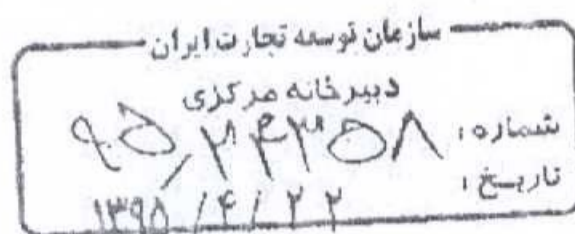 سازمان توسعه تجارت ایران
دبیرخانه مرکزی
شماره: ۹۵/۲۴۳۵۸
تاریخ: ۱۳۹۵/۴/۲۲